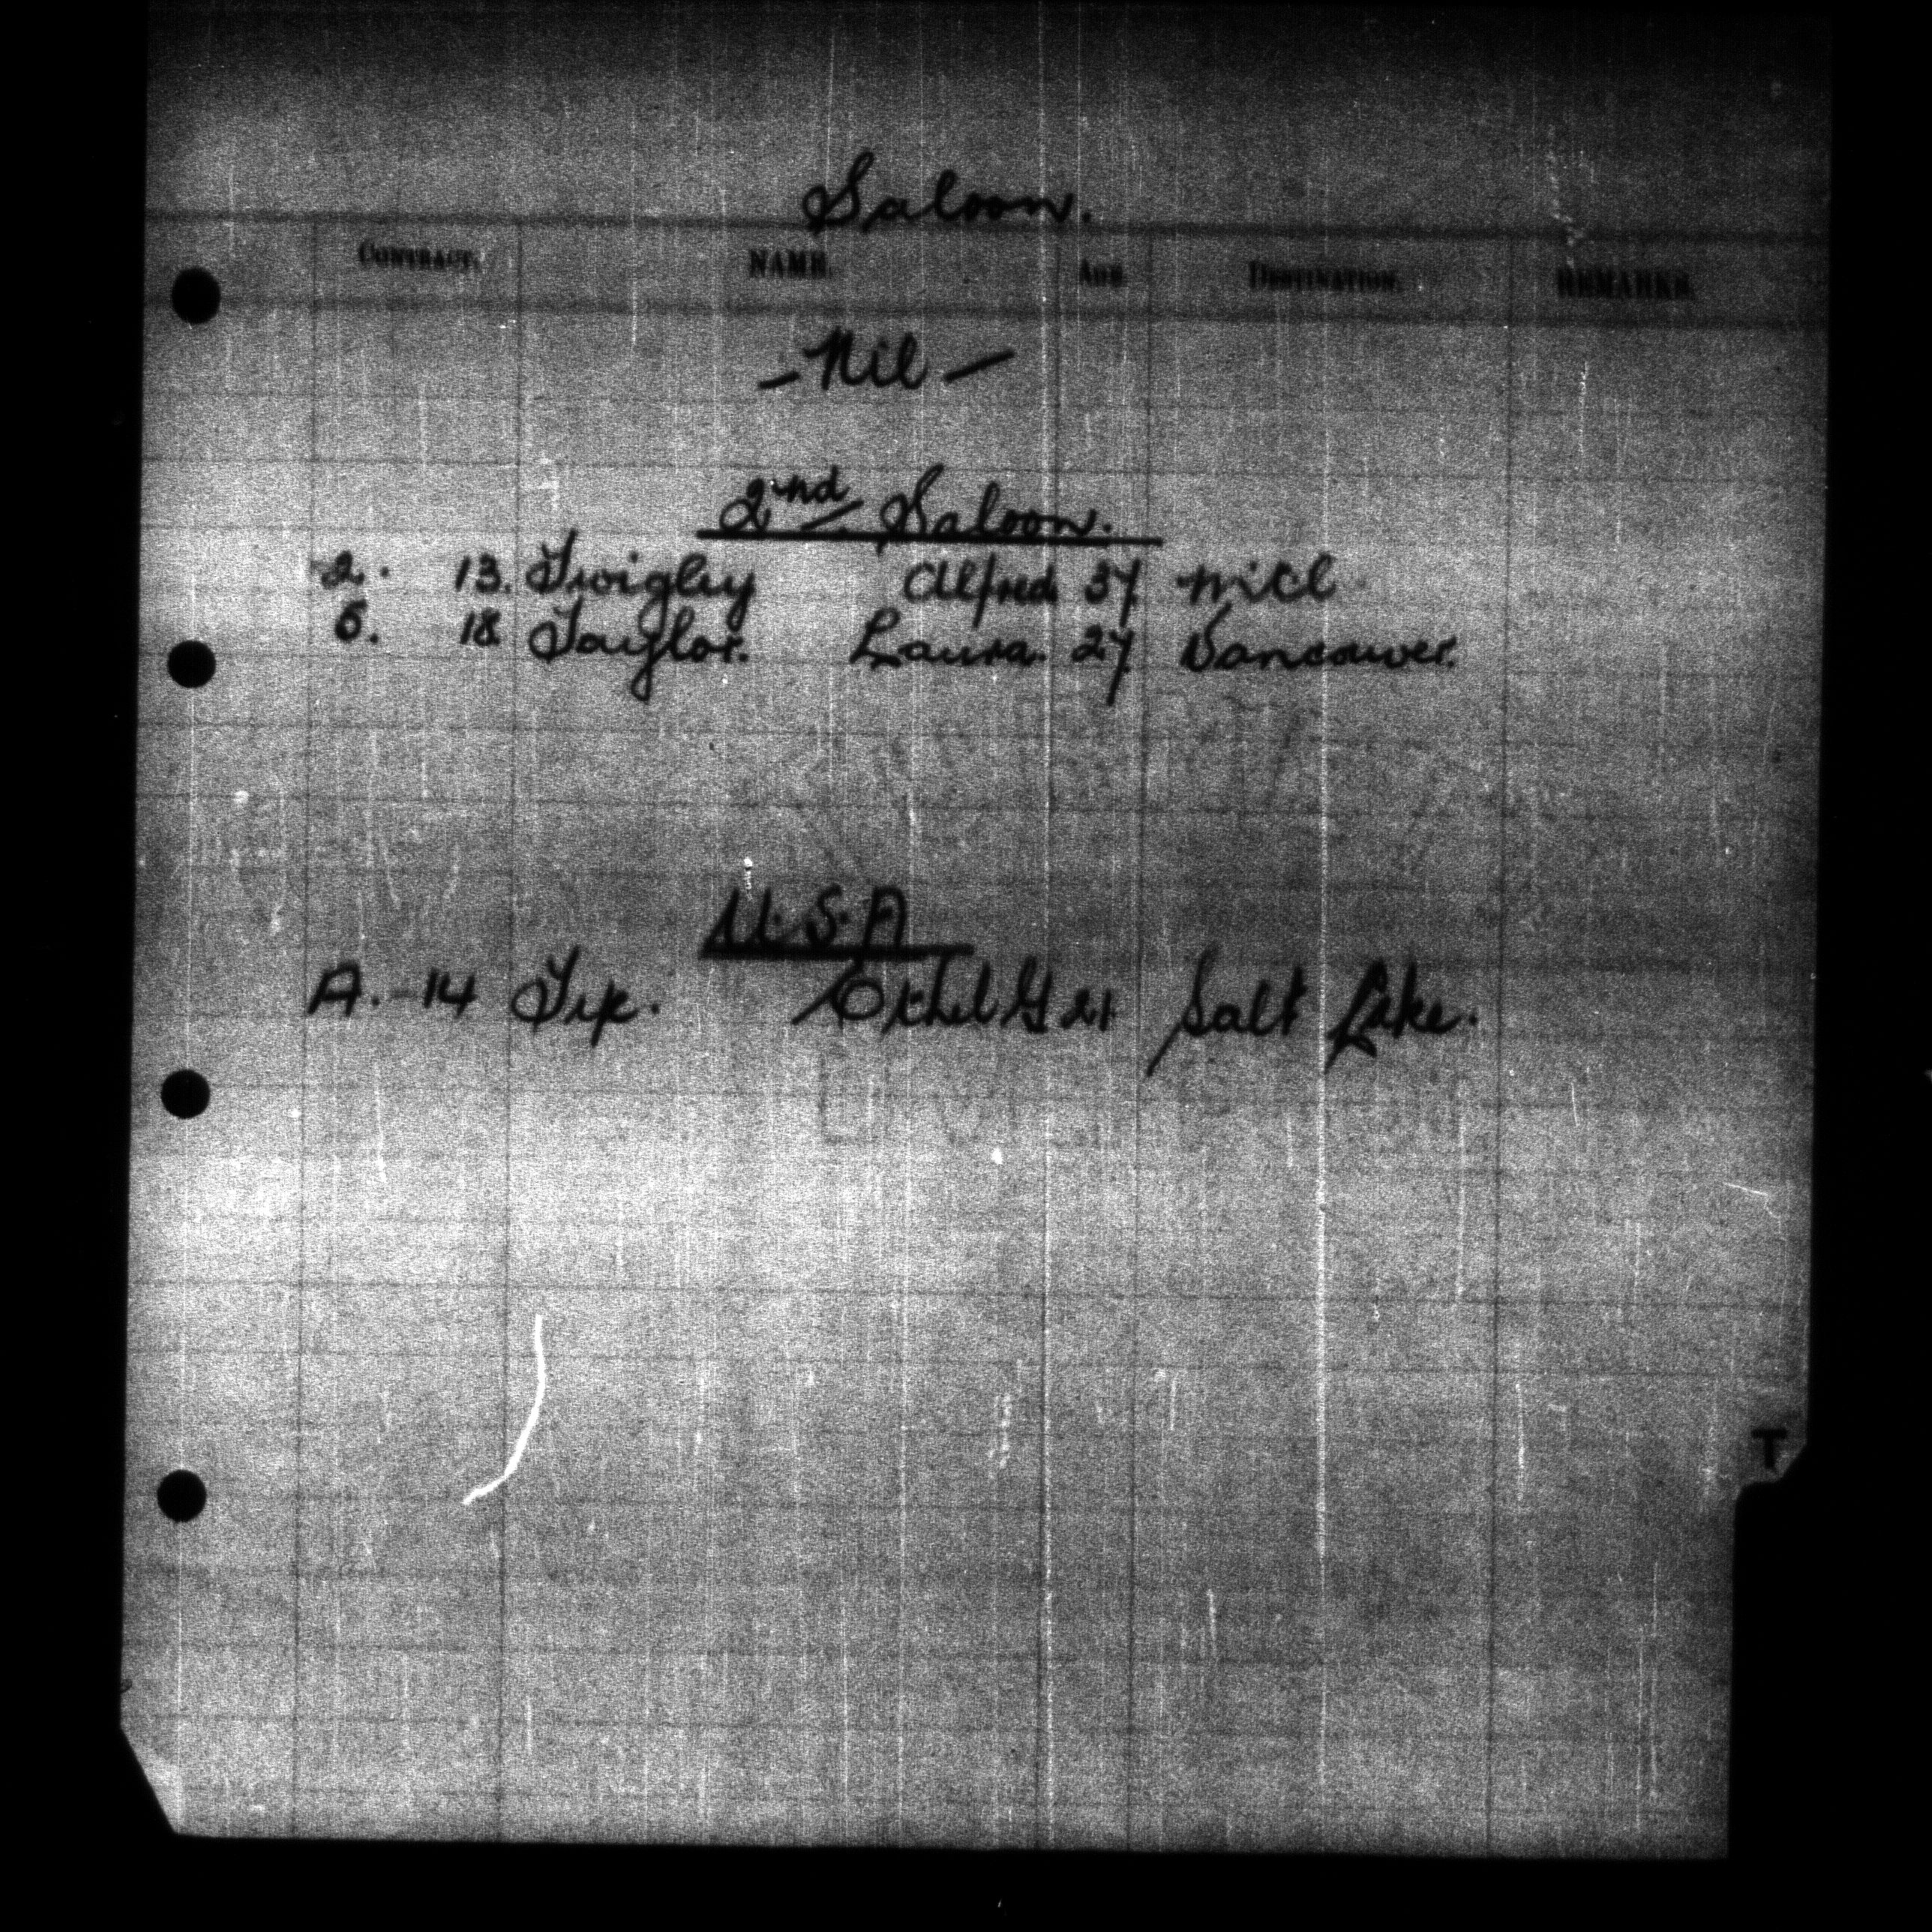 Saloon.
CONTRACT. NAME. AGE. DESTINATION. REMARKS.
- Nil -
2nd Saloon.
2. 13. Twigley Alfred 37 Mtl
5. 18 Taylor. Laura. 27 Vancouver.
U.S.A
A. - 14 Tye. Ethel G 21 Salt Lake.
T